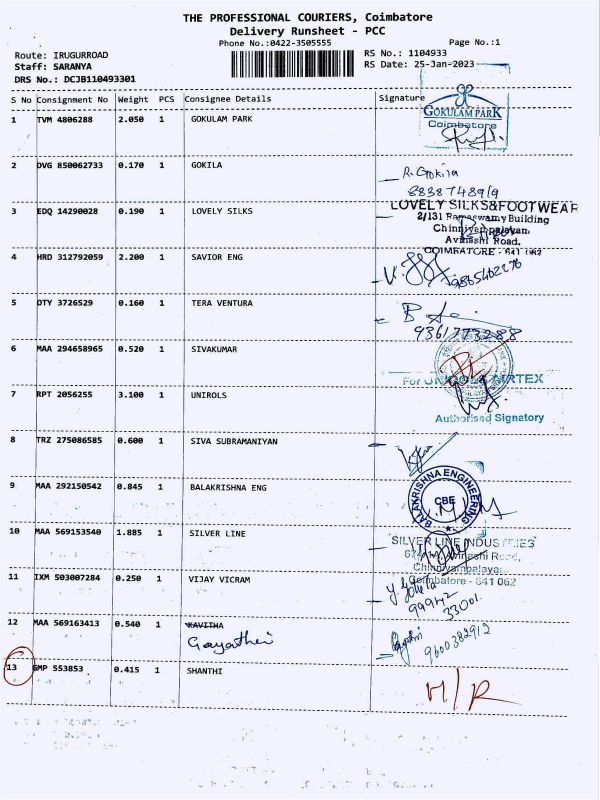 THE PROFESSIONAL COURIERS, Coimbatore
Delivery Runsheet - PCC
Phone No.:0422-3505555
Page No.:1
Route: IRUGURROAD
RS No.: 1104933
Staff: SARANYA
RS Date: 25-Jan-2023
DRS No.: DCJB110493301
S No Consignment No Weight PCS Consignee Details Signature
1 TVM 4806288 2.050 1 GOKULAM PARK
GOKULAM PARK
Coimbatore
2 DVG 850062733 0.170 1 GOKILA
R. Gokila
3 EDQ 14290028 0.190 1 LOVELY SILKS
LOVELY SILKS&FOOTWEAR
2/131 Ramaswamy Building
Chinniyampalayam,
Avinashi Road,
COIMBATORE - 641 062
4 HRD 312792059 2.200 1 SAVIOR ENG
5 OTY 3726529 0.160 1 TERA VENTURA
9361773288
6 MAA 294658965 0.520 1 SIVAKUMAR
7 RPT 2056255 3.100 1 UNIROLS
For AIRTEX
Authorised Signatory
8 TRZ 275086585 0.600 1 SIVA SUBRAMANIYAN
9 MAA 292150542 0.845 1 BALAKRISHNA ENG
BALAKRISHNA ENGINEERING
CBE
10 MAA 569153540 1.885 1 SILVER LINE
SILVER LINE INDUSTRIES
Avinashi Road,
Chinniyampalayam,
Coimbatore - 641 062
11 IXM 503007284 0.250 1 VIJAY VICRAM
99942
33001
12 MAA 569163413 0.540 1 KAVITHA
Gayathri
9600382912
13 GMP 553853 0.415 1 SHANTHI
M/R